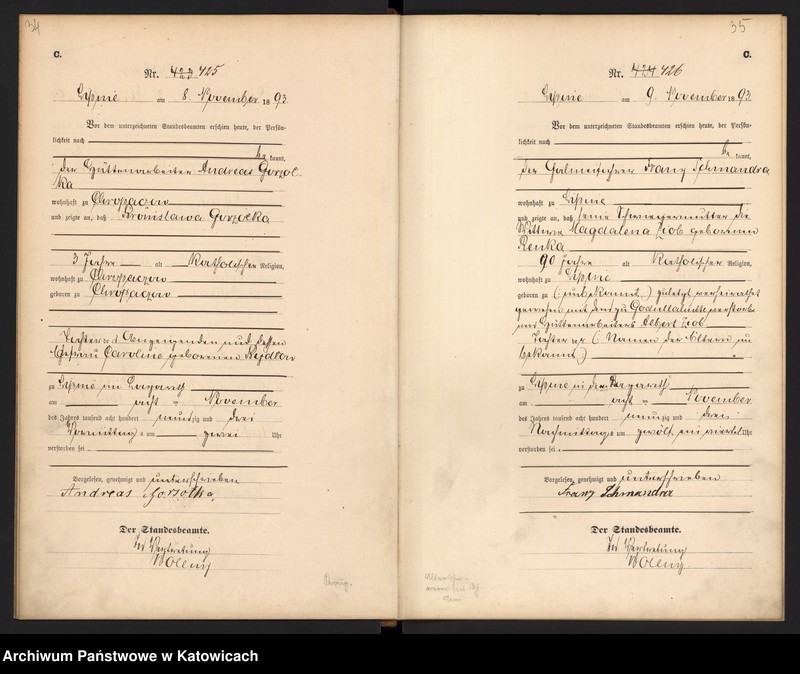 34
C.
Nr. 423 425
Lipine am 8. November 1893.
Vor dem unterzeichneten Standesbeamten erschien heute, der Persön-
lichkeit nach
be kannt,
der Hüttenarbeiter Andreas Gorzol
ka
wohnhaft zu Chropaczow
und zeigte an, daß Bronislawa Gorzolka
3 Jahre alt Katholischer Religion,
wohnhaft zu Chropaczow
geboren zu Chropaczow
Tochter des Anzeigenden und dessen
Ehefrau Caroline geborenen
zu Lipine im Lazareth
am acht November
des Jahres tausend acht hundert neunzig und drei
Vormittags um zwei Uhr
verstorben sei.
Vorgelesen, genehmigt und unterschrieben
Andreas Gorzolka
Der Standesbeamte.
In Vertretung
Woleny
35
C.
Nr. 424 426
Lipine am 9. November 1893
Vor dem unterzeichneten Standesbeamten erschien heute, der Persön-
lichkeit nach
be kannt,
der Franz Schmandra
wohnhaft zu Lipine
und zeigte an, daß seine Schwiegermutter die
Wittwe Magdalena Ziob geborenen
Renka
90 Jahre alt Katholischer Religion,
wohnhaft zu Lipine
geboren zu (unbekannt) zuletzt verheirathet
gewesen mit dem zu Godullahütte verstorbe
nen Hüttenarbeiter Albert Ziob
Tochter der (Namen der Eltern un
bekannt)
zu Lipine in
am acht November
des Jahres tausend acht hundert neunzig und drei
Nachmittags um zwölf ein viertel Uhr
verstorben sei.
Vorgelesen, genehmigt und unterschrieben
Franz Schmandra
Der Standesbeamte.
In Vertretung
Woleny
Archiwum Państwowe w Katowicach